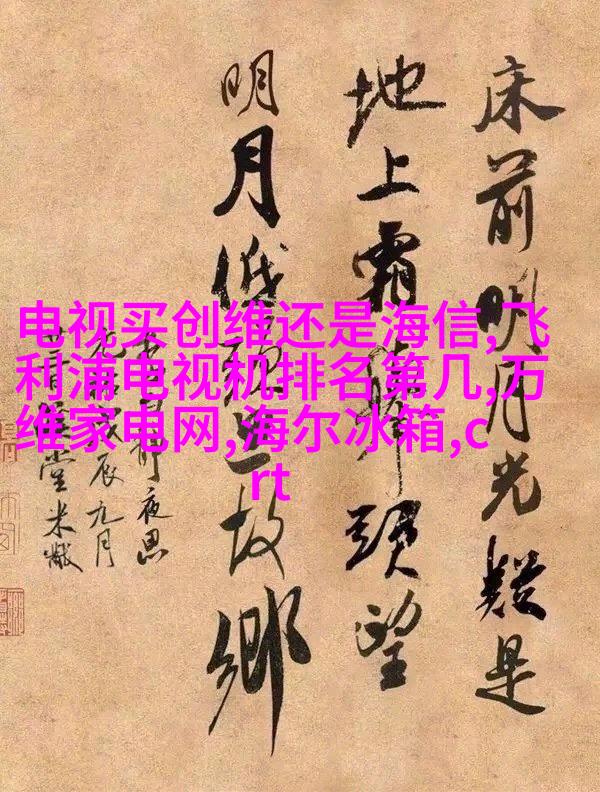 床前明月光疑是
地上霜舉頭望
明月低頭思故鄉
夜思
辰九月
堂米黻
电视买创维还是海信,飞
利浦电视机排名第几,万
维家电网,海尔冰箱,c
rt